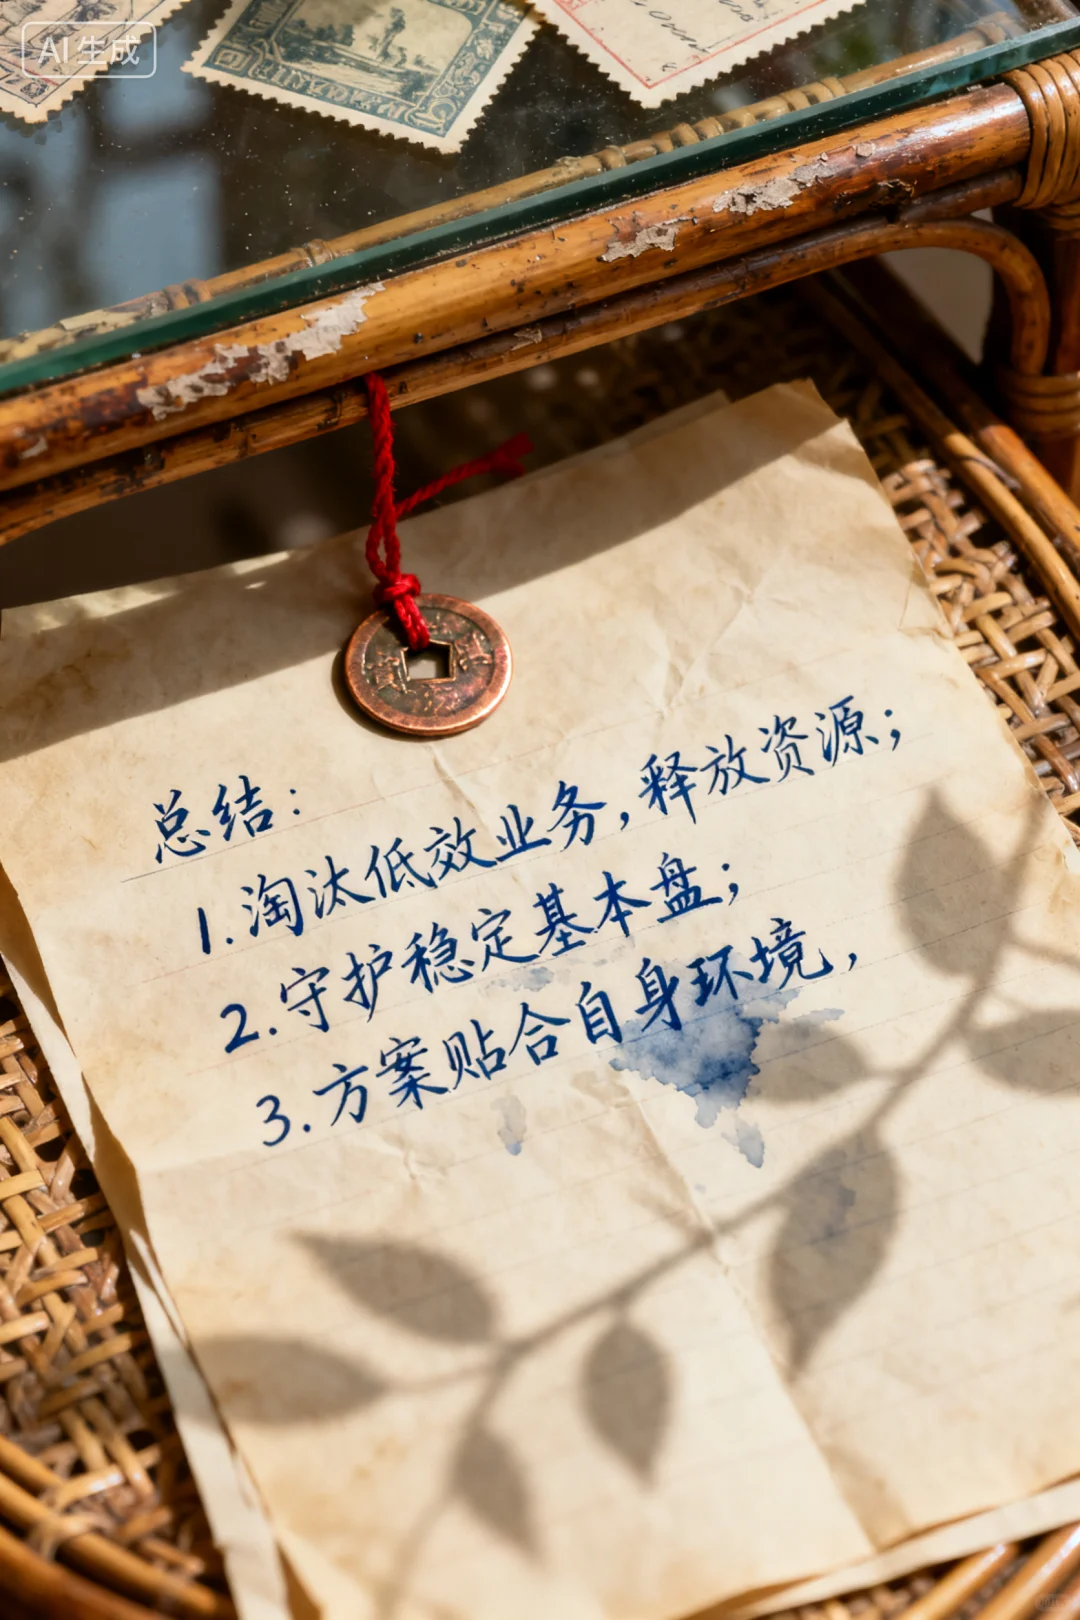 AI生成
总结：
1.淘汰低效业务，释放资源；
2.守护稳定基本盘；
3.方案贴合自身环境，